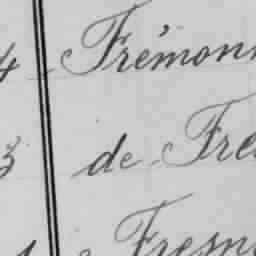 4 Frémon
3 de Fre
Fresn